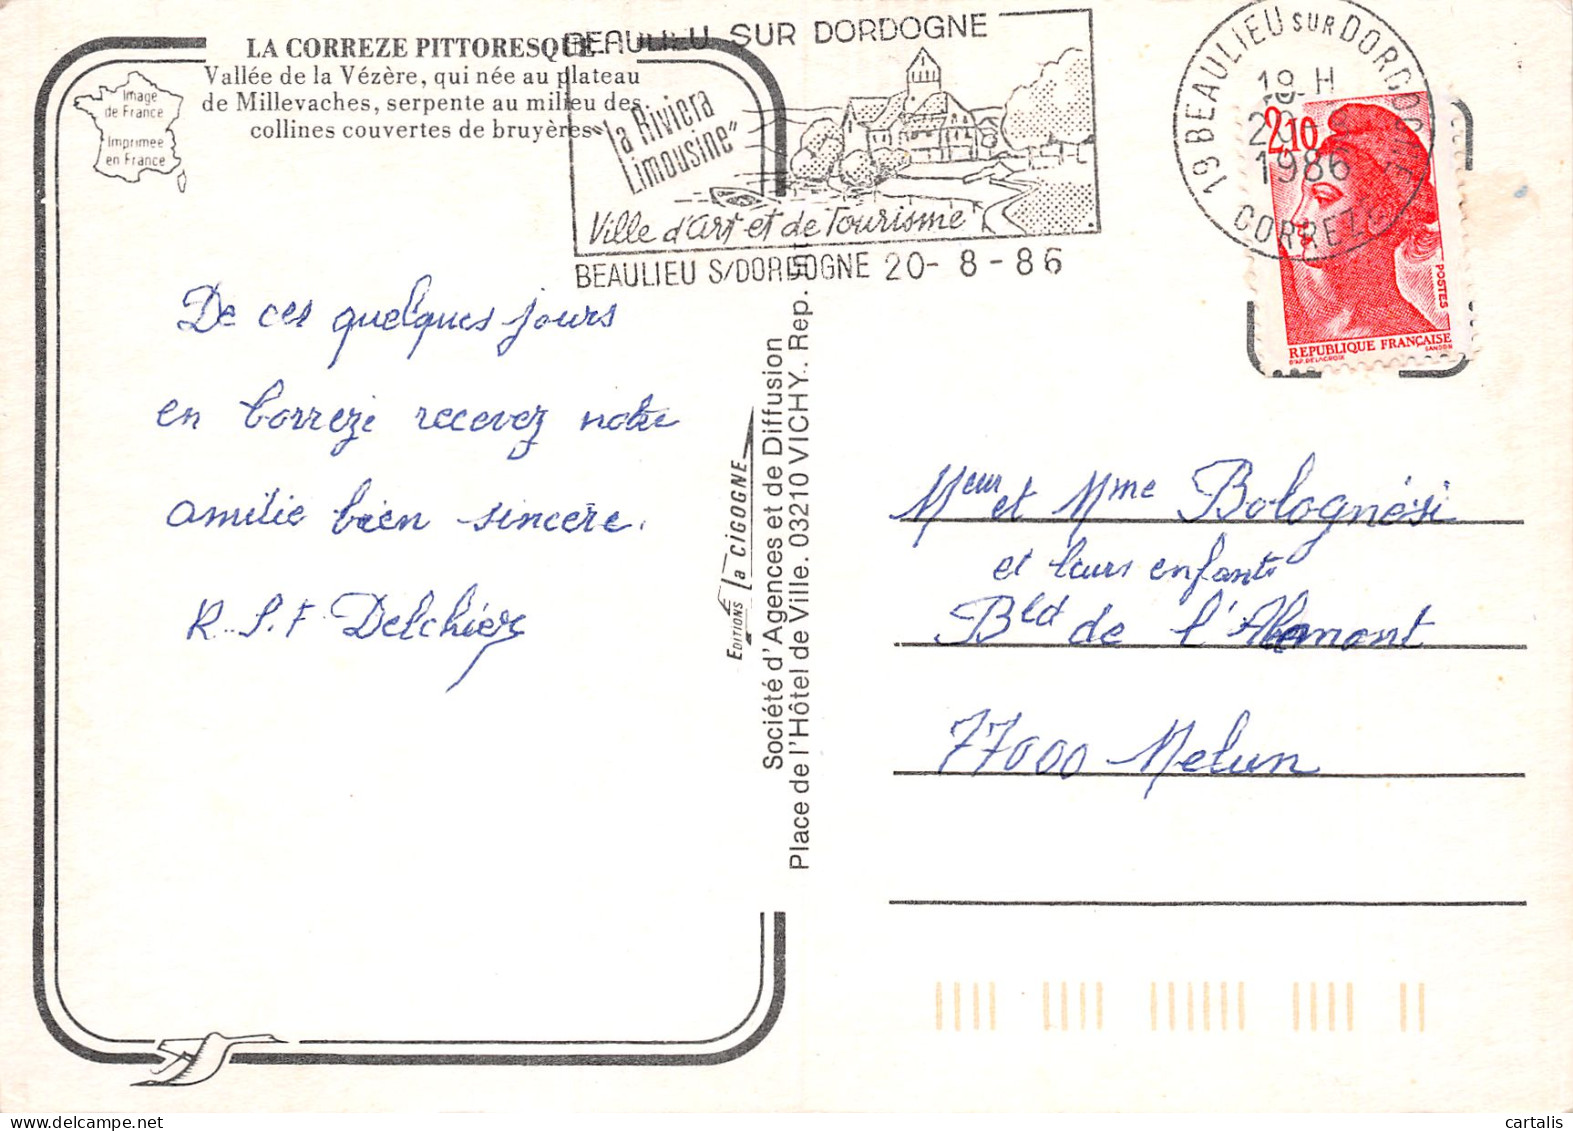 LA CORREZE PITTORESQUE
Vallée de la Vézère, qui née au plateau
de Millevaches, serpente au milieu des
collines couvertes de bruyères
Image
de France
Imprimée
en France
BEAULIEU SUR DORDOGNE
"la Riviera
Limousine"
Ville d'art et de Tourisme
BEAULIEU S/DORDOGNE 20- 8 - 86
19 BEAULIEU SUR DORDOGNE
19 H
1986
CORREZE
2,10
POSTES
REPUBLIQUE FRANÇAISE
D'AP. DELACROIX
GANDON
De ces quelques jours
en Correze recevez notre
amitié bien sincère.
R. S. F Delchier
EDITIONS la CIGOGNE
Société d'Agences et de Diffusion
Place de l'Hôtel de Ville. 03210 VICHY.. Rep.
Meur et Mme Bolognési
et leurs enfants
Bld de l'Almont
77000 Melun
cartalis
www.delcampe.net